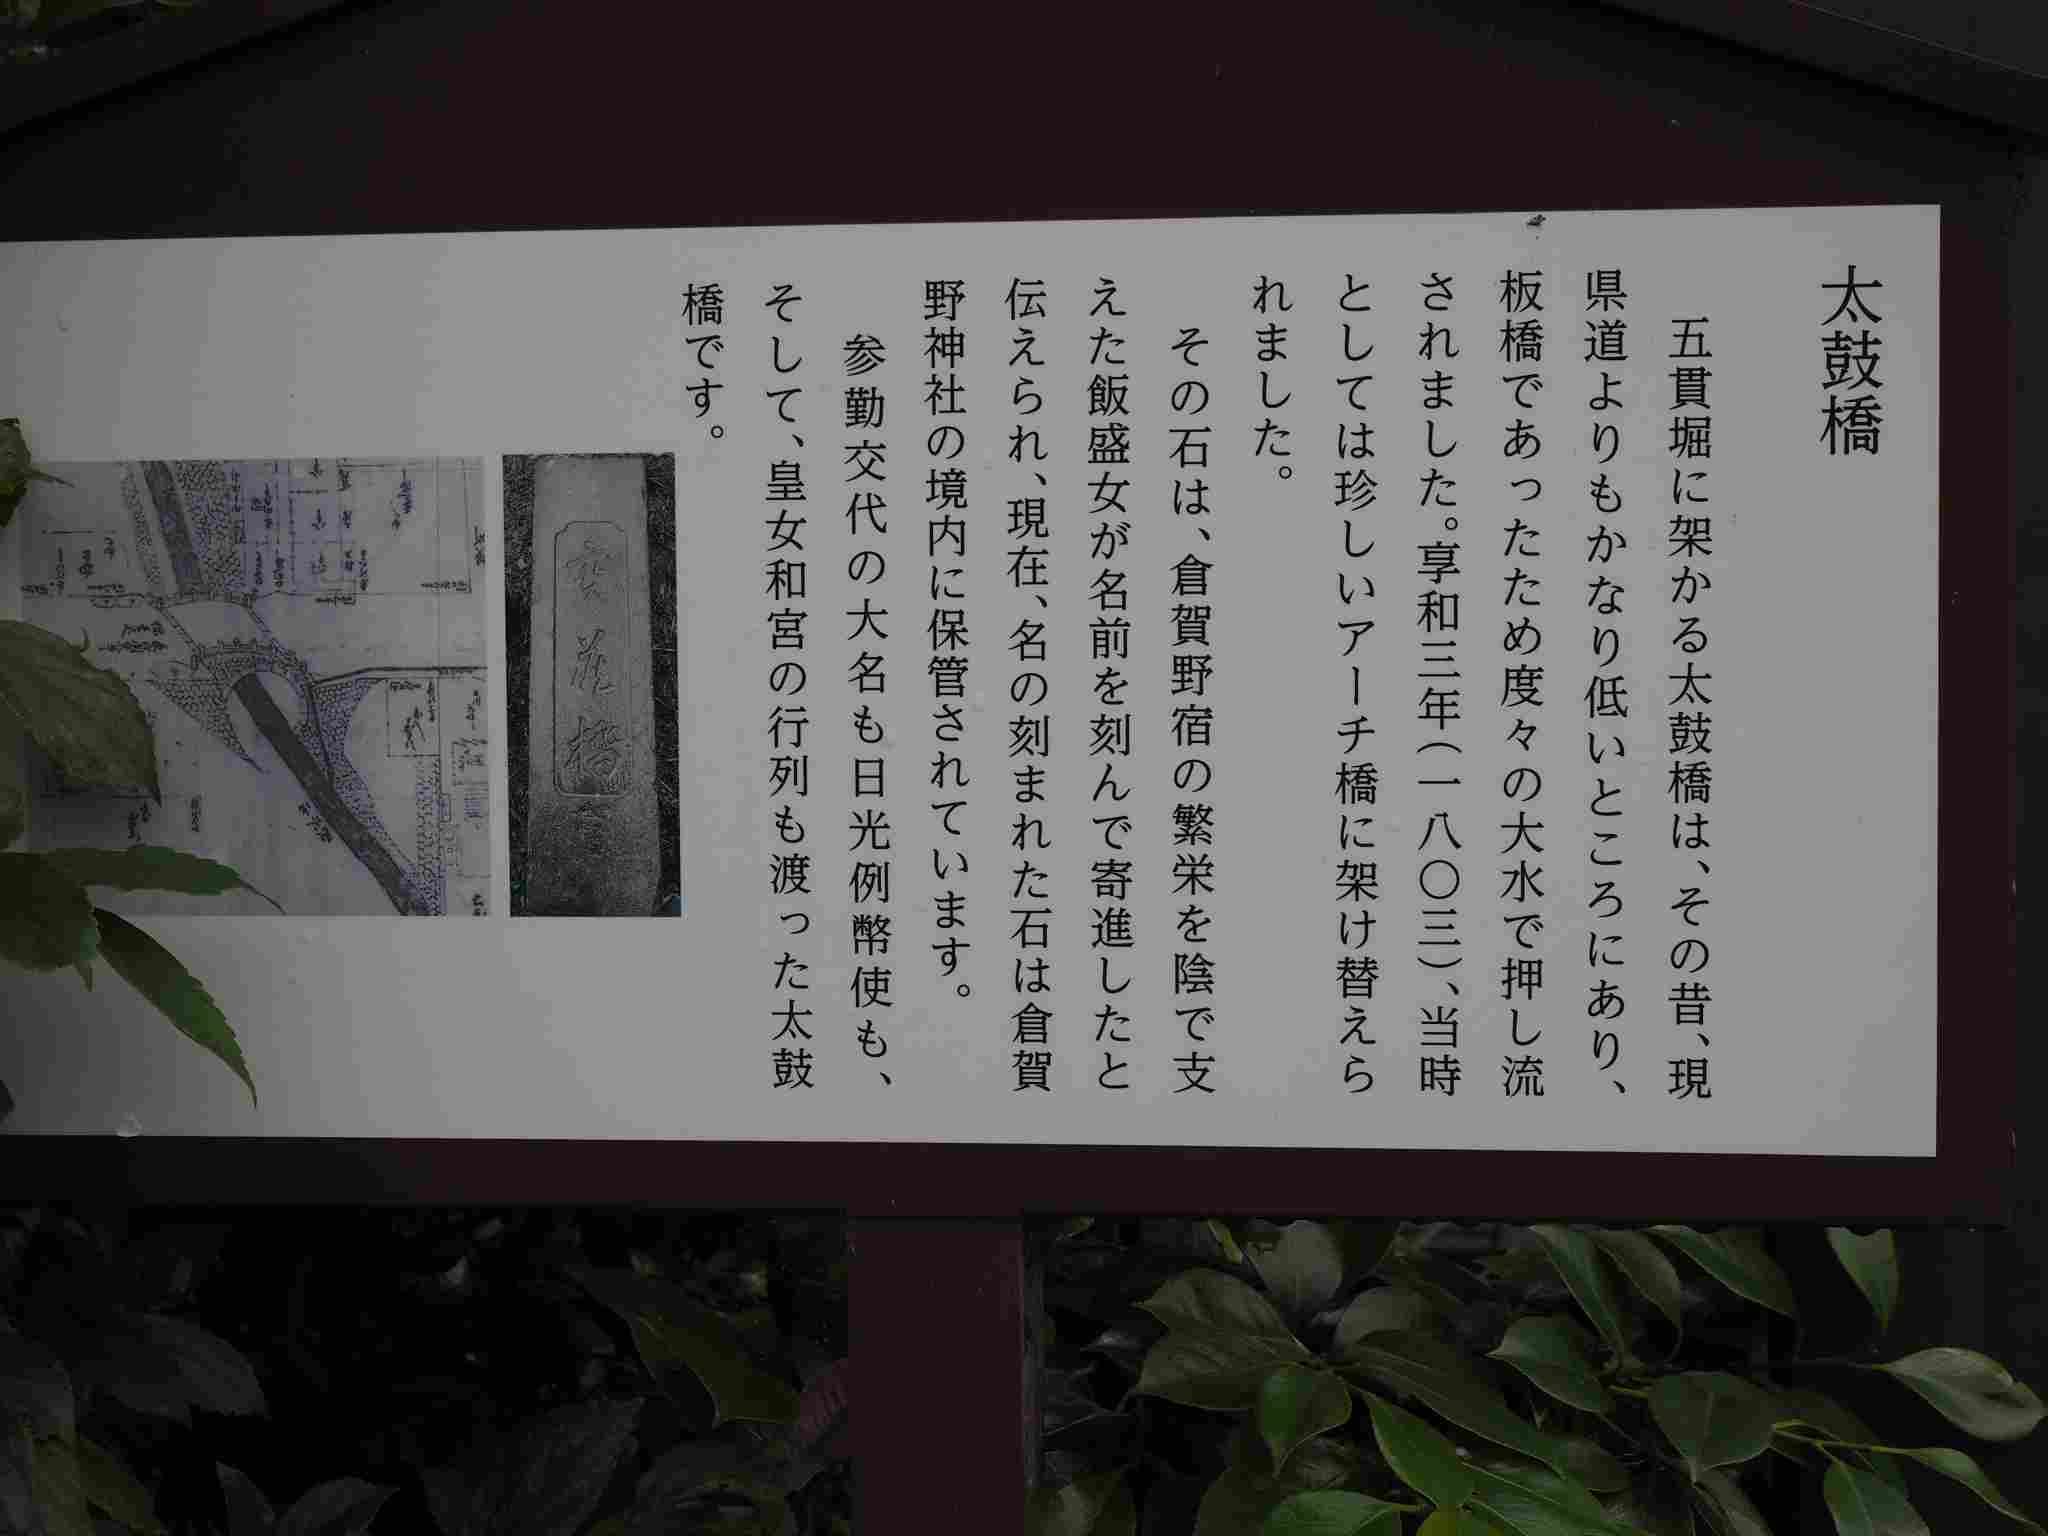 太鼓橋
五貫堀に架かる太鼓橋は、その昔、現
県道よりもかなり低いところにあり、
板橋であったため度々の大水で押し流
されました。享和三年(一八〇三)、当時
としては珍しいアーチ橋に架け替えら
れました。
その石は、倉賀野宿の繁栄を陰で支
えた飯盛女が名前を刻んで寄進したと
伝えられ、現在、名の刻まれた石は倉賀
野神社の境内に保管されています。
参勤交代の大名も日光例幣使も、
そして、皇女和宮の行列も渡った太鼓
橋です。